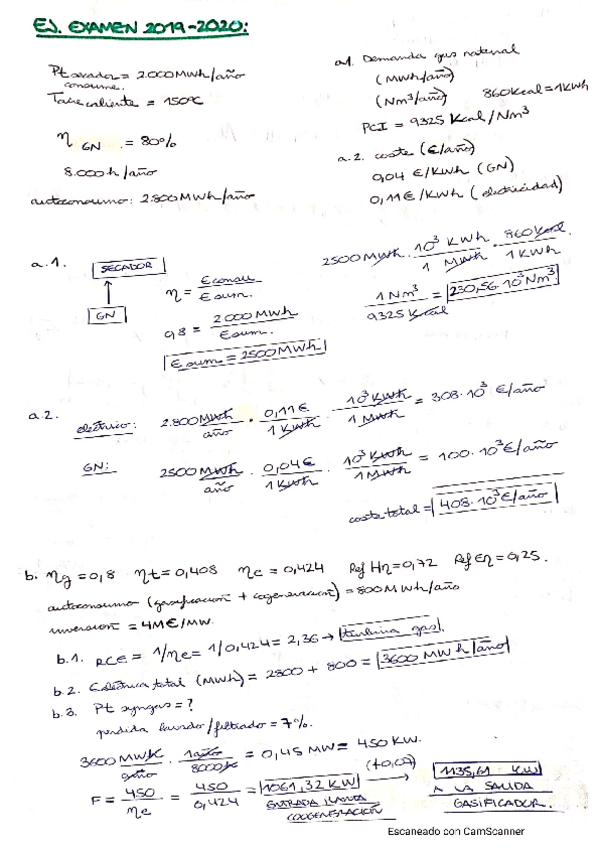 EJ. EXAMEN 2019-2020:
Pt secador = 2.000 MWh/año
consume.
Taire caliente = 150ºC
η GN = 80%
8.000 h/año
autoconsumo: 2.800 MWh/año
a.1. Demanda gas natural
(MWh/año)
(Nm³/año) 860 Kcal = 1 KWh
PCI = 9325 Kcal/Nm³
a.2. coste (€/año)
0,04 €/KWh (GN)
0,11 €/KWh (electricidad)
a.1.
SECADOR
GN
η = Econsu / Esum.
0,8 = 2000 MWh / Esum.
Esum = 2500 MWh
2500 MWh · 10³ KWh / 1 MWh · 860 Kcal / 1 KWh ·
1 Nm³ / 9325 Kcal = 230,56·10³ Nm³
a.2.
eléctrico: 2.800 MWh/año · 0,11 € / 1 KWh · 10³ KWh / 1 MWh = 308·10³ €/año
GN: 2500 MWh/año · 0,04 € / 1 KWh · 10³ KWh / 1 MWh = 100·10³ €/año
coste total = 408·10³ €/año
b. ηg = 0,8 ηt = 0,408 ηe = 0,424 Ref Hη = 0,72 Ref Eη = 0,25.
autoconsumo (gasificación + cogeneración) = 800 MWh/año
inversión = 4M€/MW.
b.1. RCE = 1/ηe = 1/0,424 = 2,36 → turbina gas.
b.2. Eléctrica total (MWh) = 2800 + 800 = 3600 MWh/año
b.3. Pt syngas = ?
pérdida lavado/filtrado = 7%.
3600 MWh/año · 1 año / 8000 h = 0,45 MW = 450 KW.
F = 450 / ηe = 450 / 0,424 = 1061,32 KW (+0,07) → 1135,61 KW
ENTRADA PLANTA COGENERACIÓN
A LA SALIDA GASIFICADOR.
Escaneado con CamScanner